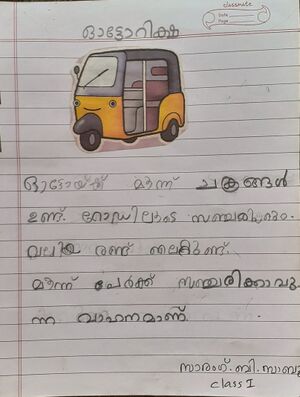 classmate
Date
Page
ഓട്ടോറിക്ഷ
ഓട്ടോയ്ക്ക് മൂന്ന് ചക്രങ്ങൾ
ഉണ്ട്. റോഡിലൂടെ സഞ്ചരിക്കും.
വലിയ രണ്ട് ലൈറ്റുണ്ട്.
മൂന്ന് പേർക്ക് സഞ്ചരിക്കാവു
ന്ന വാഹനമാണ്.
സാരംഗ്. ബി. സാബു
class I